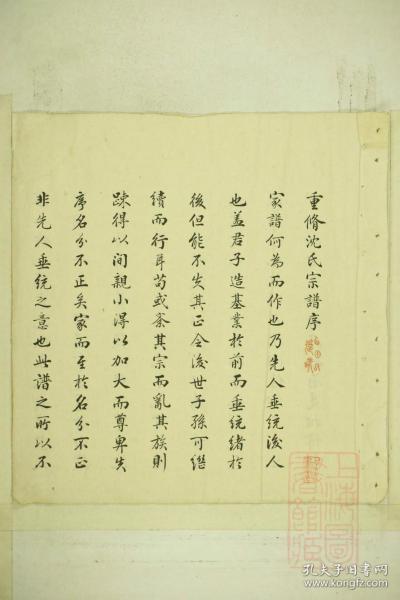 重脩沈氏宗譜序
家譜何為而作也乃先人垂統後人
也盖君子造基業於前而垂統緒於
後但能不失其正令後世子孫可継
續而行耳苟或紊其宗而亂其族則
踈得以间親小得以加大而尊卑失
序名分不正矣家而至於名分不正
非先人垂统之意也此譜之所以不
孔夫子旧书网
www.kongfz.com